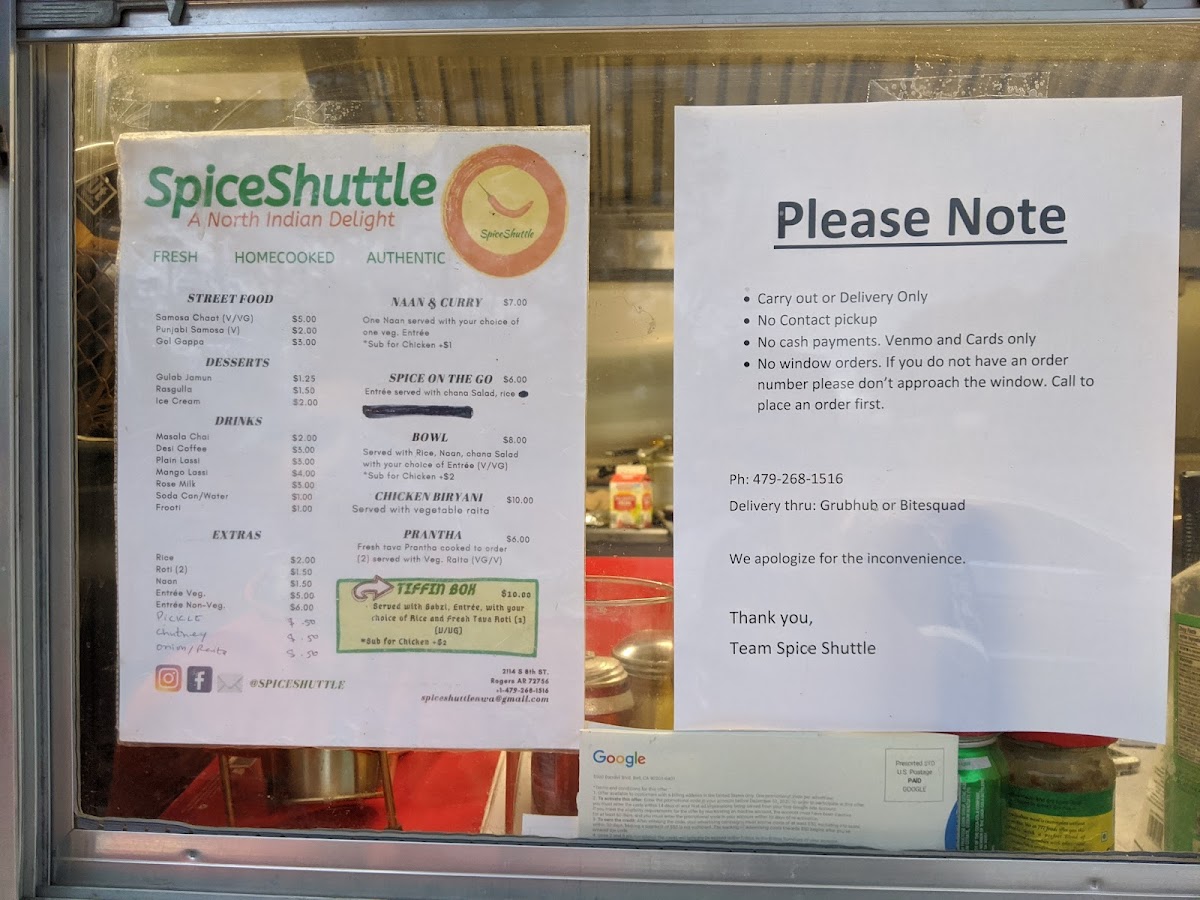 SpiceShuttle
A North Indian Delight
FRESH HOMECOOKED AUTHENTIC
SpiceShuttle
STREET FOOD
Samosa Chaat (V/VG) $5.00
Punjabi Samosa (V) $2.00
Gol Gappa $3.00
DESSERTS
Gulab Jamun $1.25
Rasgulla $1.50
Ice Cream $2.00
DRINKS
Masala Chai $2.00
Desi Coffee $3.00
Plain Lassi $3.00
Mango Lassi $4.00
Rose Milk $3.00
Soda Can/Water $1.00
Frooti $1.00
EXTRAS
Rice $2.00
Roti (2) $1.50
Naan $1.50
Entrée Veg. $5.00
Entrée Non-Veg. $6.00
Pickle $ .50
Chutney $ .50
onion/Raita $ .50
NAAN & CURRY $7.00
One Naan served with your choice of
one veg. Entrée
*Sub for Chicken +$1
SPICE ON THE GO $6.00
Entrée served with chana Salad, rice
BOWL $8.00
Served with Rice, Naan, chana Salad
with your choice of Entrée (V/VG)
*Sub for Chicken +$2
CHICKEN BIRYANI $10.00
Served with vegetable raita
PRANTHA $6.00
Fresh tava Prantha cooked to order
(2) served with Veg. Raita (VG/V)
TIFFIN BOX $10.00
Served with Sabzi, Entrée, with your
choice of Rice and Fresh Tava Roti (2)
(V/VG)
*Sub for Chicken +$2
@SPICESHUTTLE
2114 S 8th ST.
Rogers AR 72756
+1-479-268-1516
spiceshuttlenwa@gmail.com
Please Note
• Carry out or Delivery Only
• No Contact pickup
• No cash payments. Venmo and Cards only
• No window orders. If you do not have an order
number please don't approach the window. Call to
place an order first.
Ph: 479-268-1516
Delivery thru: Grubhub or Bitesquad
We apologize for the inconvenience.
Thank you,
Team Spice Shuttle
Google
Presorted STD
U.S. Postage
PAID
GOOGLE